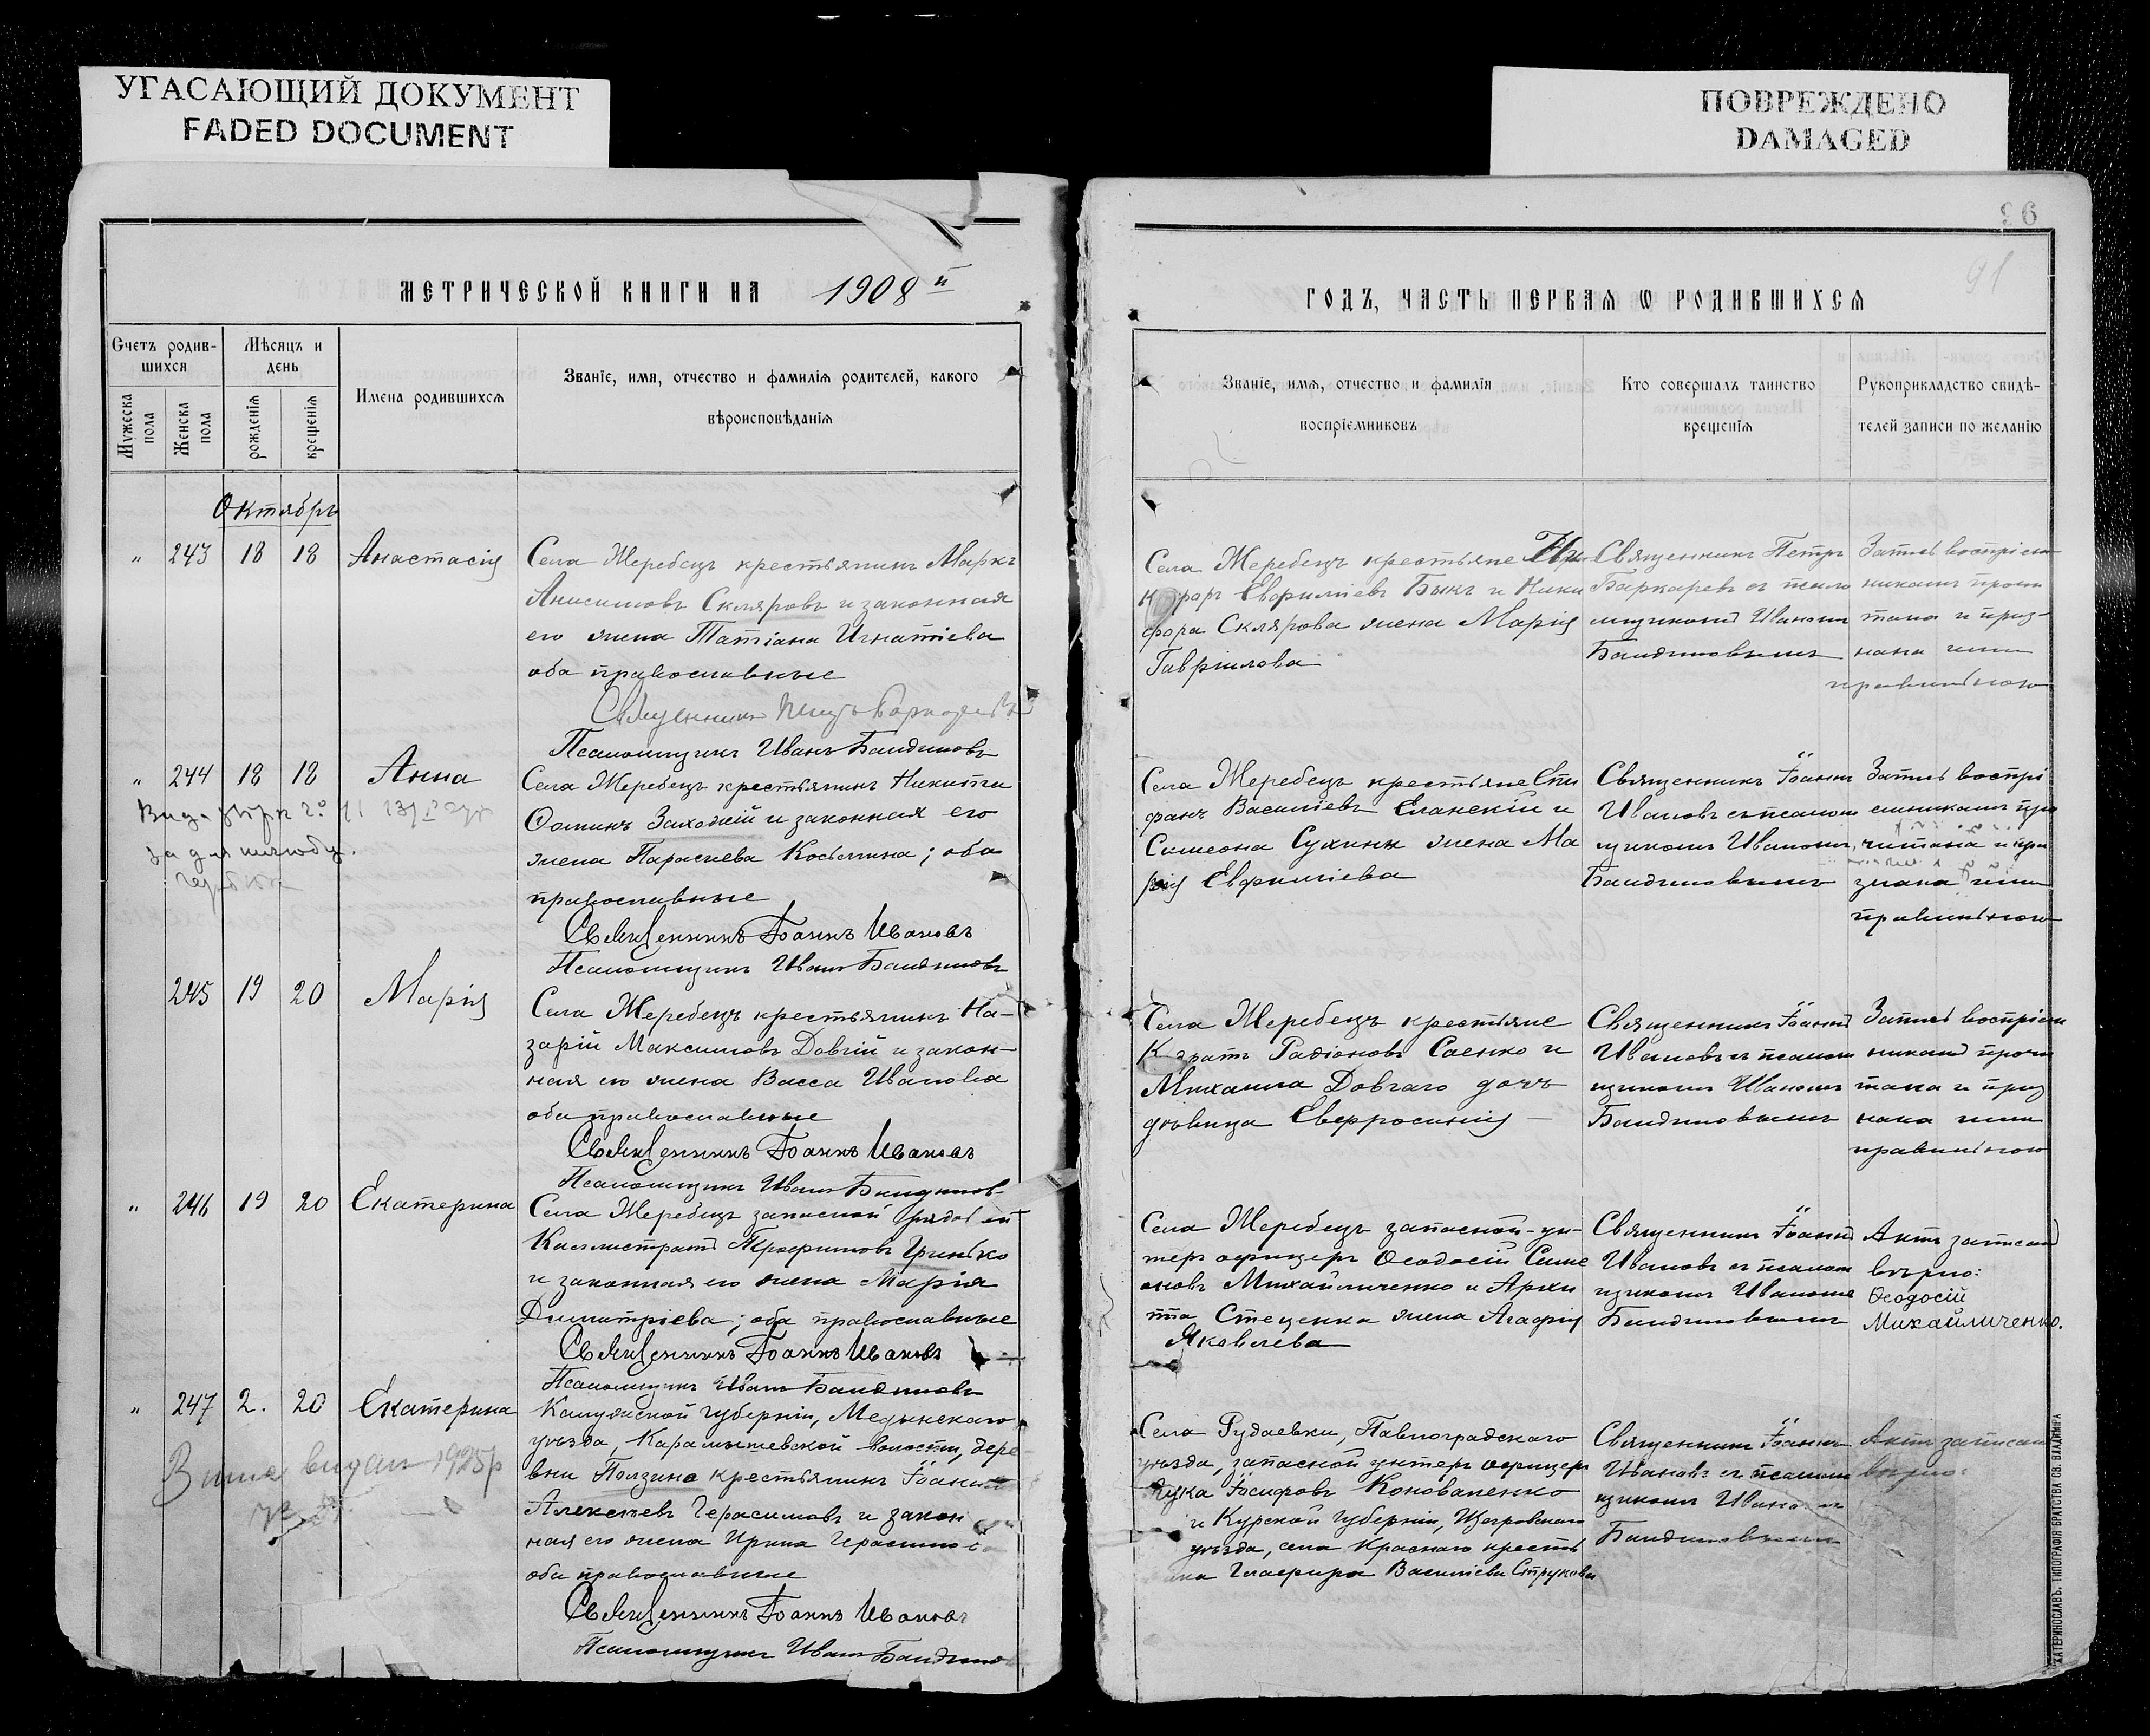 УГАСАЮЩИЙ ДОКУМЕНТ
FADED DOCUMENT
ПОВРЕЖДЕНО
DAMAGED
96
91
МЕТРИЧЕСКОЙ КНИГИ НА 1908 й
ГОДЪ, ЧАСТЬ ПЕРВАЯ Ѡ РОДИВШИХСЯ
Счетъ родив-
шихся
Мужеска пола
Женска пола
Мѣсяцъ и
день
рожденія
крещенія
Имена родившихся
Званіе, имя, отчество и фамилія родителей, какого
вѣроисповѣданія
Званіе, имя, отчество и фамилія
воспріемниковъ
Кто совершалъ таинство
крещенія
Рукоприкладство свидѣ-
телей записи по желанію
Октябрь
" 243 18 18 Анастасія
Села Жеребецъ крестьянинъ Маркъ
Анисимовъ Скляровъ и законная
его жена Татіана Игнатіева
оба православные
Священникъ Петръ
Псаломщикъ Иванъ Бандиновъ
Села Жеребецъ крестьяне
Евфиміевъ Быкъ и Ники
фора Склярова жена Марія
Гавріилова
Священникъ Петръ
Баркаревъ съ псало
мщикомъ Иваномъ
Бандиновымъ
Запись воспріем
никамъ прочи
тана и приз-
нана ими
правильною
" 244 18 18 Анна
Села Жеребецъ крестьянинъ Никита
Ѳоминъ Заходжій и законная его
жена Параскева Косьмина; оба
православные
Священникъ Іоаннъ Ивановъ
Псаломщикъ Иванъ Бандиновъ
Села Жеребецъ крестьяне Сте
фанъ Василіевъ Еланскій и
Симеона Сухина жена Ма
рія Евфиміева
Священникъ Іоаннъ
Ивановъ съ псалом
щикомъ Иваномъ
Бандиновымъ
Запись воспрі
емникамъ про
читана и при
знана ими
правильною
245 19 20 Марія
Села Жеребецъ крестьянинъ На-
зарій Максимовъ Довгій и закон-
ная его жена Васса Иванова
оба православные
Священникъ Іоаннъ Ивановъ
Псаломщикъ Иванъ Бандиновъ
Села Жеребецъ крестьяне
Родіоновъ Саенко и
Михаила Довгаго дочь
дѣвица Евфросинія
Священникъ Іоаннъ
Ивановъ съ псалом
щикомъ Иваномъ
Бандиновымъ
Запись воспріем
никамъ прочи
тана и приз
нана ими
правильною
" 246 19 20 Екатерина
Села Жеребецъ запасной рядовой
Каллистратъ Трофимовъ Гринько
и законная его жена Марія
Димитріева; оба православные
Священникъ Іоаннъ Ивановъ
Псаломщикъ Иванъ Бандиновъ
Села Жеребецъ запасной ун-
теръ офицеръ Ѳеодосій Симе
оновъ Михайличенко и Архи
ппа Стеценка жена Агафія
Яковлева
Священникъ Іоаннъ
Ивановъ съ псалом
щикомъ Иваномъ
Бандиновымъ
Актъ записанъ
вѣрно:
Ѳеодосій
Михайличенко.
" 247 2. 20 Екатерина
1925р
Калужской губерніи, Медынскаго
уѣзда, Карамышевской волости, дере
вни Ползина крестьянинъ Іоаннъ
Алексѣевъ Герасимовъ и закон
ная его жена Ирина Герасимова
оба православные
Священникъ Іоаннъ Ивановъ
Псаломщикъ Иванъ Бандинов
Села Рудаевки, Павлоградскаго
уѣзда, запасной унтеръ офицеръ
Лука Іосифовъ Коноваленко
и Курской губерніи, Щигровскаго
уѣзда, села Краснаго кресть
янка Гликерія Василіева Струкова
Священникъ Іоаннъ
Ивановъ съ псалом
щикомъ Иваномъ
Бандиновымъ
Актъ записанъ
вѣрно:
ЕКАТЕРИНОСЛАВЪ. ТИПОГРАФІЯ БРАТСТВА СВ. ВЛАДИМІРА